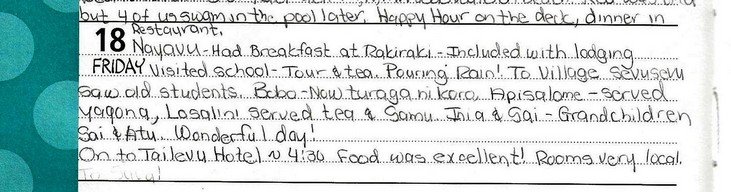 but 4 of us swam in the pool later. Happy Hour on the deck, dinner in
Restaurant.
18 Nayavu - Had Breakfast at Rakiraki - Included with lodging
FRIDAY Visited school - Tour & tea. Pouring Rain! To Village sevusevu
saw old students. Bebo - Now turaga ni koro, Apisalome - served
yaqona, Losalini served tea & Samu. Inia & Sai - Grandchildren
Sai & Atu. Wonderful day!
On to Tailevu Hotel ~ 4:30 Food was excellent! Rooms very local.